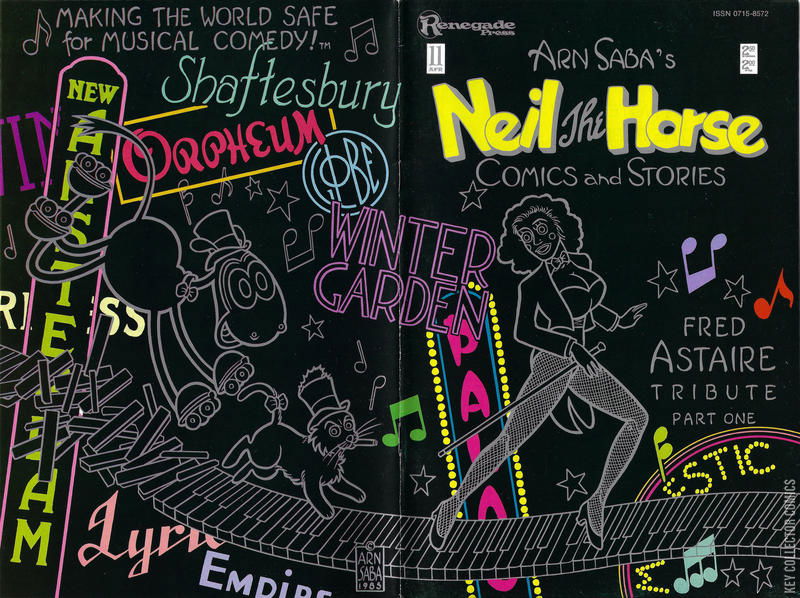 MAKING THE WORLD SAFE
for MUSICAL COMEDY!™
NEW
AMSTERDAM
Shaftesbury
ORPHEUM
GLOBE
WINTER
GARDEN
SS
Lyric
EMPIRE
© ARN
SABA
1985
Renegade
Press
ISSN 0715-8572
11
APR
ARN SABA'S
Neil The Horse
COMICS and STORIES
FRED
ASTAIRE
TRIBUTE
PART ONE
PALA
STIC
M
KEY COLLECTOR COMICS